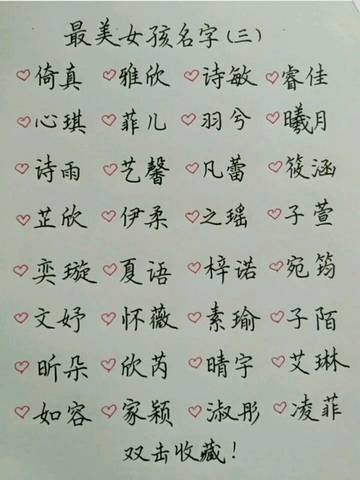 最美女孩名字(三)
♡倚真 ♡雅欣 ♡诗敏 ♡睿佳
♡心琪 ♡菲儿 ♡羽兮 ♡曦月
♡诗雨 ♡艺馨 ♡凡蕾 ♡筱涵
♡芷欣 ♡伊柔 ♡之瑶 ♡子萱
♡奕璇 ♡夏语 ♡梓诺 ♡宛筠
♡文妤 ♡怀薇 ♡素瑜 ♡子陌
♡昕朵 ♡欣芮 ♡晴宇 ♡艾琳
♡如容 ♡家颖 ♡淑彤 ♡凌菲
双击收藏!